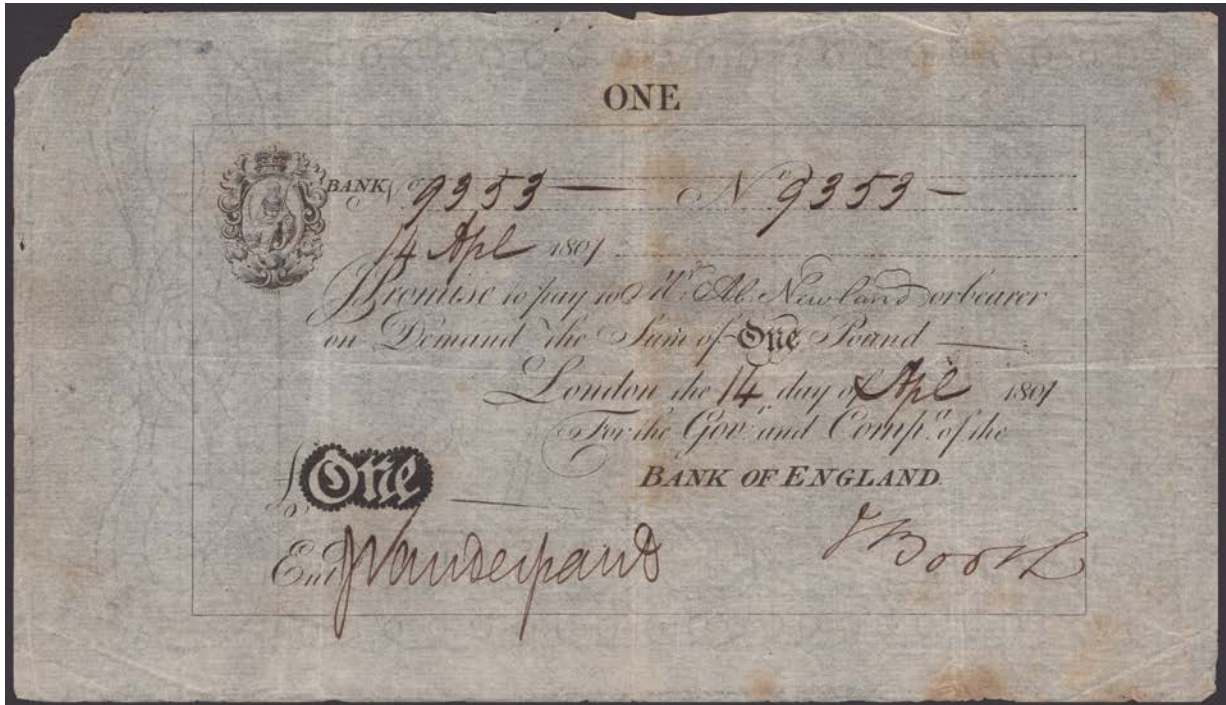 ONE
BANK No 9353 — No 9353 —
14 Apl 1801
Promise to pay to Mr. Ab. Newland or bearer
on Demand the Sum of One Pound
London the 14 day of Apl 1801
For the Govr. and Compa. of the
BANK OF ENGLAND.
£ One
Entd
J Booth